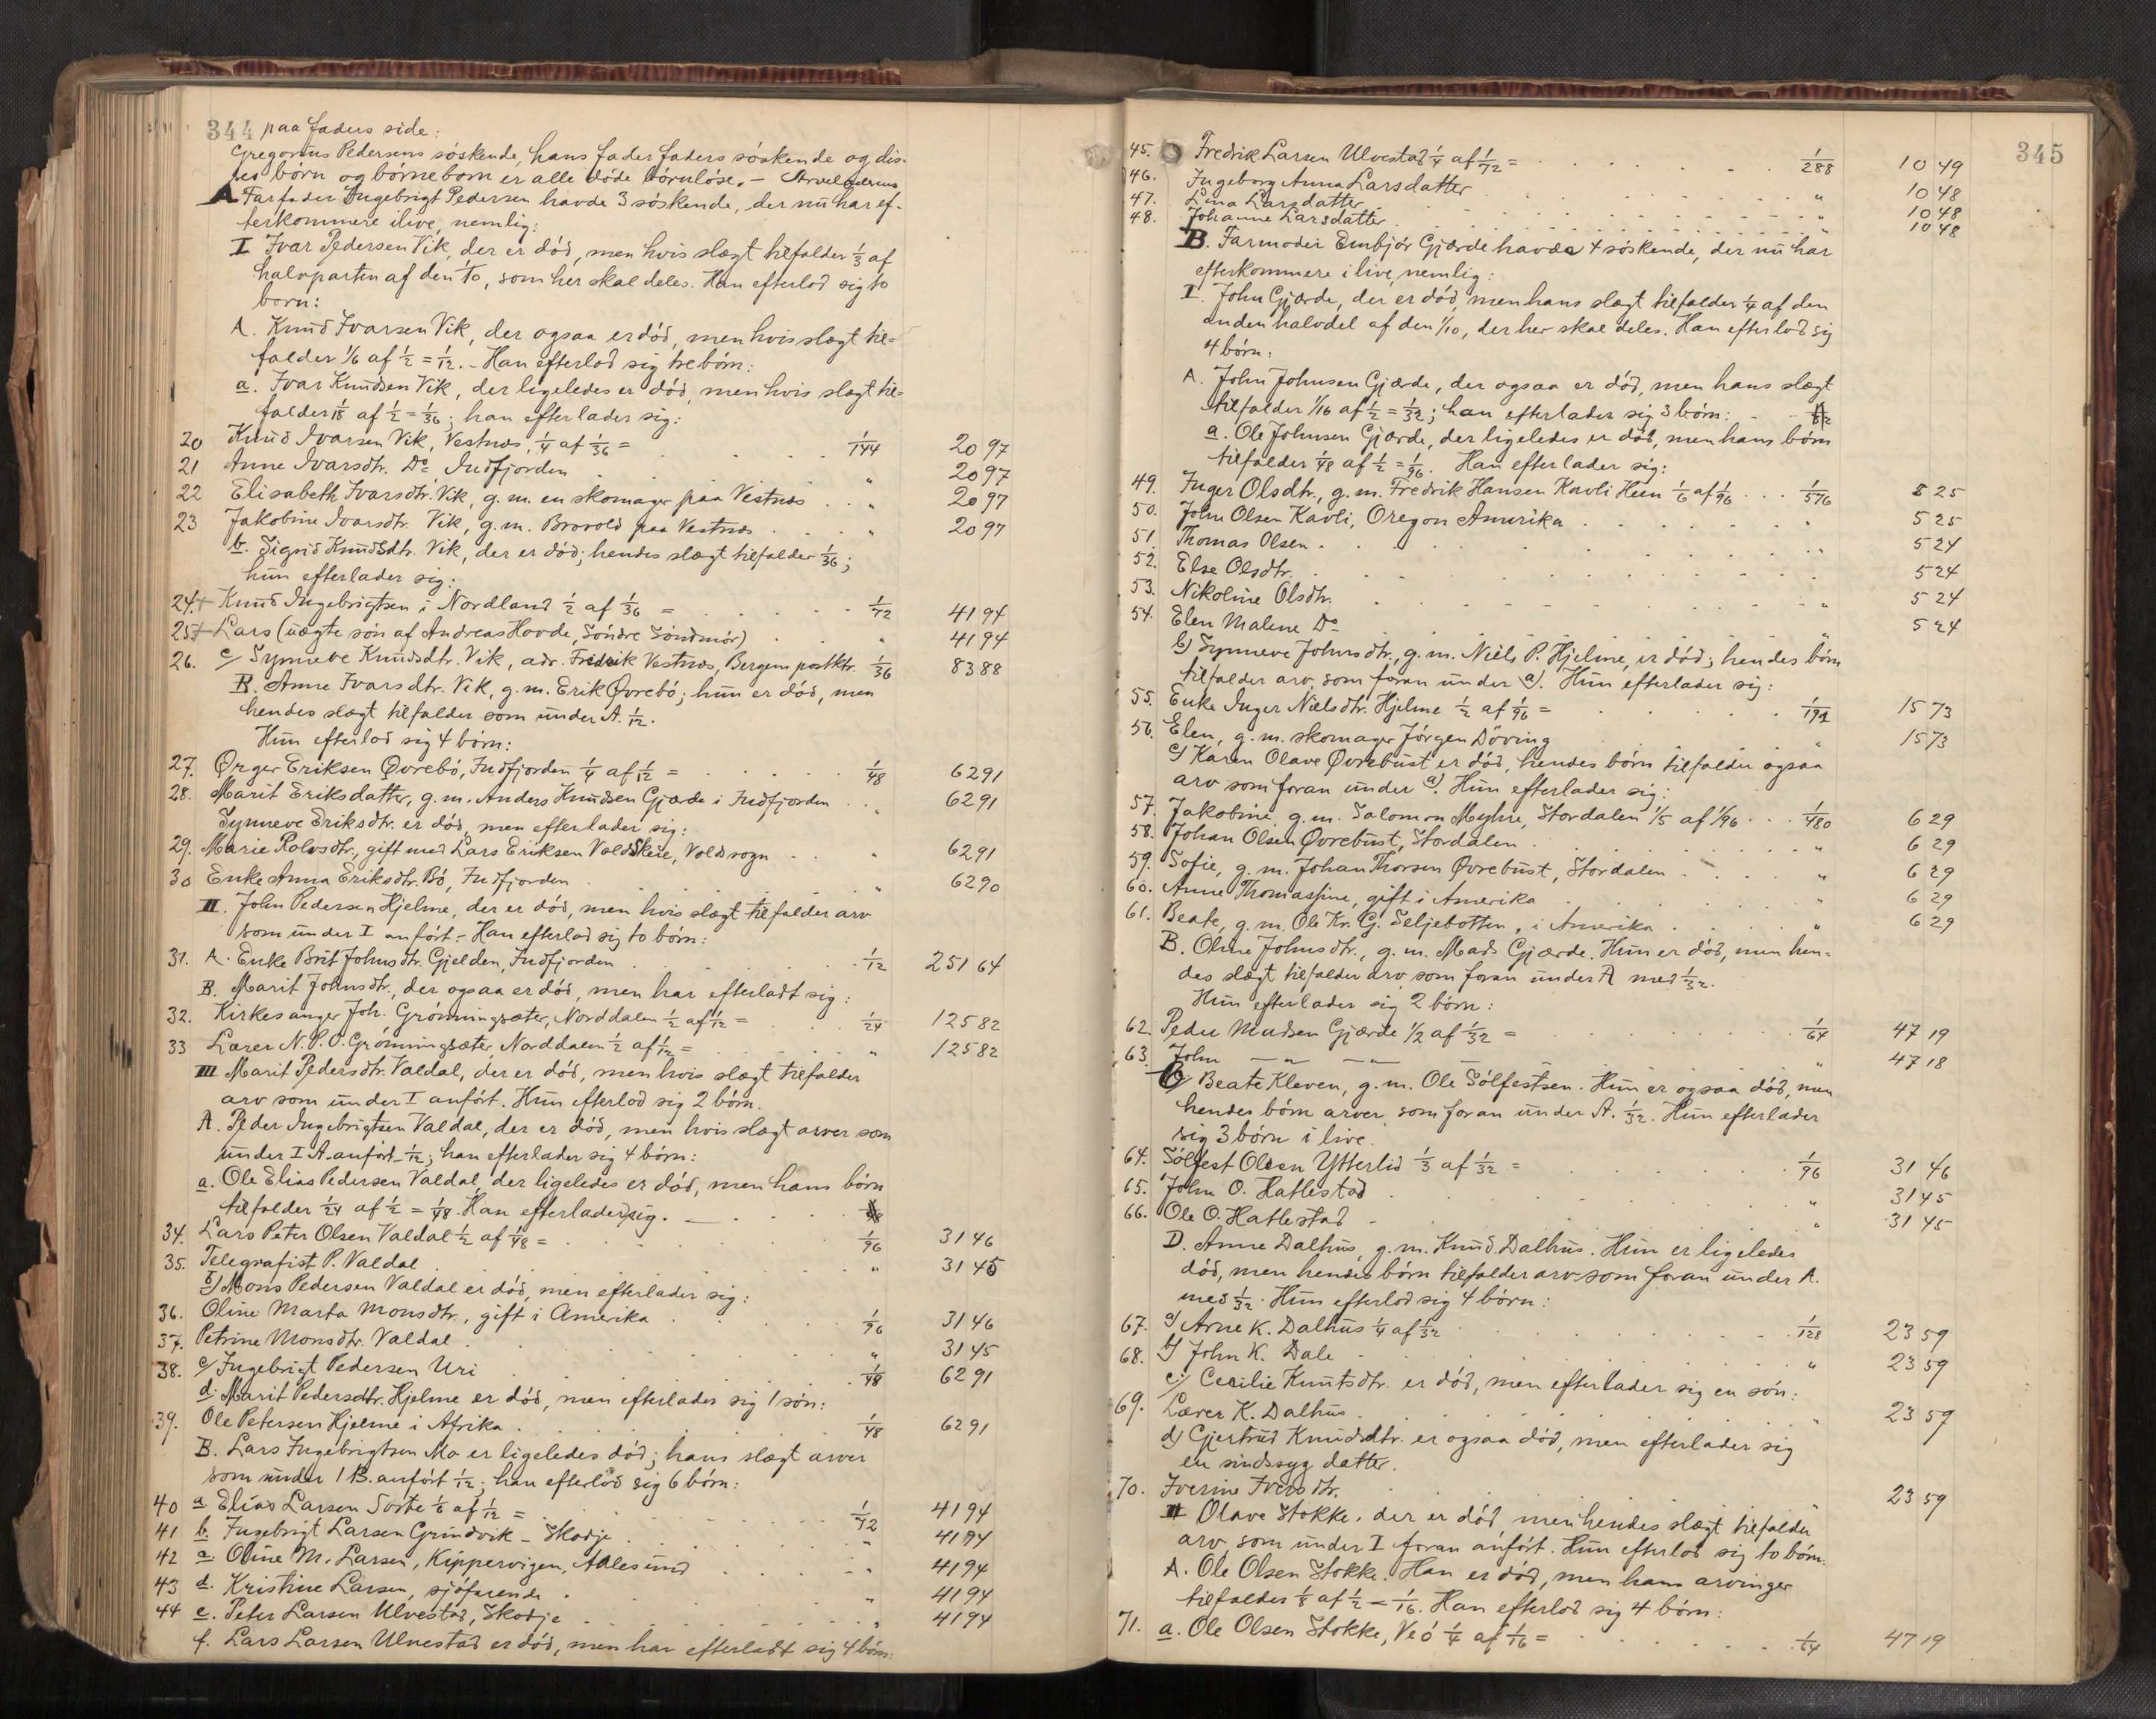 344 paa faders side:
Gregorius Pedersens søskende, hans fader faders søskende og dis-
ses børn og børnebørn er alle døde børnløse. —
A Farfader Ingebrigt Pedersen havde 3 søskende, der nu har ef-
terkommere ilive, nemlig:
I Ivar Pedersen Vik, der er død, men hvis slægt tilfalder 1/3 af
halvparten af den 1/10, som her skal deles. Han efterlod sig to
børn:
A. Knud Ivarsen Vik, der ogsaa er død, men hvis slægt til-
falder 1/6 af 1/2 = 1/12. - Han efterlod sig tre børn:
a. Ivar Knudsen Vik, der ligeledes er død, men hvis slægt til-
falder 1/18 af 1/2 = 1/36; han efterlader sig:
20 Knud Ivarsen Vik, Vestnæs, 1/4 af 1/36 = 1/144 20 97
21 Anne Ivarsdtr. Do Indfjorden " 20 97
22 Elisabeth Ivarsdtr. Vik, g. m. en skomager paa Vestnæs " 20 97
23 Jakobine Ivarsdtr. Vik, g. m. Brovold paa Vestnæs " 20 97
b. Sigrid Knudsdtr. Vik, der er død; hendes slægt tilfalder 1/36;
hun efterlader sig:
24.+ Knud Ingebrigtsen i Nordland 1/2 af 1/36 = 1/72 41 94
25+ Lars (uægte søn af Andreas Hovde, Søndre Søndmør) " 41 94
26. c/ Synneve Knudsdtr. Vik, adr. Fredrik Vestnæs, Bergen postktr. 1/36 83 88
B. Anne Ivarsdtr. Vik, g. m. Erik Øvrebø; hun er død, men
hendes slægt tilfalder som under A. 1/12.
Hun efterlod sig 4 børn:
27. Ørger Eriksen Øvrebø, Indfjorden 1/4 af 1/12 = 1/48 62 91
28. Marit Eriksdatter, g. m. Anders Knudsen Gjærde i Indfjorden " 62 91
Synneve Eriksdtr. er død, men efterlader sig:
29. Marie Rolvsdtr., gift med Lars Eriksen VoldSkeie, Volds sogn " 62 91
30 Enke Anna Eriksdtr. Bø, Indfjorden " 62 90
II. John Pedersen Hjelme, der er død, men hvis slægt tilfalder arv
som under I anført. - Han efterlod sig to børn:
31. A. Enke Brit Johnsdtr. Gjelden, Indfjorden 1/12 251 64
B. Marit Johnsdtr., der ogsaa er død, men har efterladt sig:
32. Kirkesanger Joh. Grønningsæter, Norddalen 1/2 af 1/12 = 1/24 125 82
33 Lærer N. P. O. Grønningsæter, Norddalen 1/2 af 1/12 = " 125 82
III Marit Pedersdtr. Valdal, der er død, men hvis slægt tilfalder
arv som under I anført. Hun efterlod sig 2 børn.
A. Peder Ingebrigtsen Valdal, der er død, men hvis slægt arver som
under I A. anført 1/12; han efterlader sig 4 børn:
a. Ole Elias Pedersen Valdal, der ligeledes er død, men hans børn
tilfalder 1/24 af 1/2 = 1/48. Han efterlader sig. —
34. Lars Peter Olsen Valdal 1/2 af 1/48 = 1/96 31 46
35. Telegrafist P. Valdal " 31 45
b) Mons Pedersen Valdal er død, men efterlader sig:
36. Oline Marta Monsdtr., gift i Amerika 1/96 31 46
37. Petrine Monsdtr. Valdal " 31 45
38. c/ Ingebrigt Pedersen Uri 1/48 62 91
d. Marit Pedersdtr. Hjelme er død, men efterlader sig 1 søn:
39. Ole Petersen Hjelme i Afrika 1/48 62 91
B. Lars Ingebrigtsen Mo er ligeledes død; hans slægt arver
som under I B. anført 1/12; han efterlod sig 6 børn:
40 a Elias Larsen Sorte 1/6 af 1/12 = 1/72 41 94
41 b. Ingebrigt Larsen Grindvik - Skodje " 41 94
42 c Oline M. Larsen, Kippervigen, Aalesund " 41 94
43 d. Kristine Larsen, sjøfarende " 41 94
44 e. Peter Larsen Ulvestad, Skodje " 41 94
f. Lars Larsen Ulvestad er død, men har efterladt sig 4 børn:
345
45. Fredrik Larsen Ulvestad 1/4 af 1/72 = 1/288 10 49
46. Ingeborg Anna Larsdatter " 10 48
47. Lina Larsdatter " 10 48
48. Johanne Larsdatter " 10 48
B. Farmoder Embjør Gjærde havde 4 søskende, der nu har
efterkommere i live, nemlig:
I. John Gjærde, der er død, men hans slægt tilfalder 1/4 af den
anden halvdel af den 1/10, der her skal deles. Han efterlod sig
4 børn:
A. John Johnsen Gjærde, der ogsaa er død, men hans slægt
tilfalder 1/16 af 1/2 = 1/32; han efterlader sig 3 børn:
a. Ole Johnsen Gjærde, der ligeledes er død, men hans børn
tilfalder 1/48 af 1/2 = 1/96. Han efterlader sig:
49. Inger Olsdtr., g. m. Fredrik Hansen Kavli Heen 1/6 af 1/96 1/576 5 25
50. John Olsen Kavli, Oregon Amerika " 5 25
51. Thomas Olsen " 5 24
52. Else Olsdtr. 5 24
53. Nikoline Olsdtr. " 5 24
54. Elen Malene Do " 5 24
b) Synneve Johnsdtr., g. m. Niels P. Hjelme, er død; hendes børn
tilfalder arv, som foran under a). Hun efterlader sig:
55. Enke Inger Nielsdtr. Hjelme 1/2 af 1/96 = 1/192 15 73
56. Elen, g. m. skomager Jørgen Døving " 15 73
c) Karen Olave Øvrebust er død, hendes børn tilfalder ogsaa
arv som foran under a). Hun efterlader sig:
57. Jakobine, g. m. Salomon Myhre, Stordalen 1/5 af 1/96 1/480 6 29
58. Johan Olsen Øvrebust, Stordalen " 6 29
59. Sofie, g. m. Johan Thorsen Øvrebust, Stordalen " 6 29
60. Anne Thomassine, gift i Amerika " 6 29
61. Beate, g. m. Ole Kr. G. Seljebotten, i Amerika " 6 29
B. Oline Johnsdtr., g. m. Mads Gjærde. Hun er død, men hen-
des slægt tilfalder arv, som foran under A med 1/32.
Hun efterlader sig 2 børn:
62. Peder Madsen Gjærde 1/2 af 1/32 = 1/64 47 19
63. John — " — " — " 47 18
C/ Beate Kleven, g. m. Ole Sølfestsen. Hun er ogsaa død, men
hendes børn arver som foran under A. 1/32. Hun efterlader
sig 3 børn i live.
64. Sølfest Olsen Ytterlid 1/3 af 1/32 = 1/96 31 46
65. John O. Hatlestad " 31 45
66. Ole O. Hatlestad " 31 45
D. Anne Dalhus, g. m. Knud Dalhus. Hun er ligeledes
død, men hendes børn tilfalder arv som foran under A.
med 1/32. Hun efterlod sig 4 børn:
67. a) Arne K. Dalhus 1/4 af 1/32 1/128 23 59
68. b) John K. Dale " 23 59
c) Cecilie Knutsdtr. er død, men efterlader sig en søn:
69. Lærer K. Dalhus " 23 59
d) Gjertrud Knudsdtr. er ogsaa død, men efterlader sig
en sindssyg datter.
70. Iverine Iversdtr. " 23 59
II Olave Stokke, der er død, men hendes slægt tilfalder
arv, som under I foran anført. Hun efterlod sig to børn.
A. Ole Olsen Stokke. Han er død, men hans arvinger
tilfalder 1/8 af 1/2 = 1/16. Han efterlod sig 4 børn:
71. a. Ole Olsen Stokke, Veø 1/4 af 1/16 = 1/64 47 19